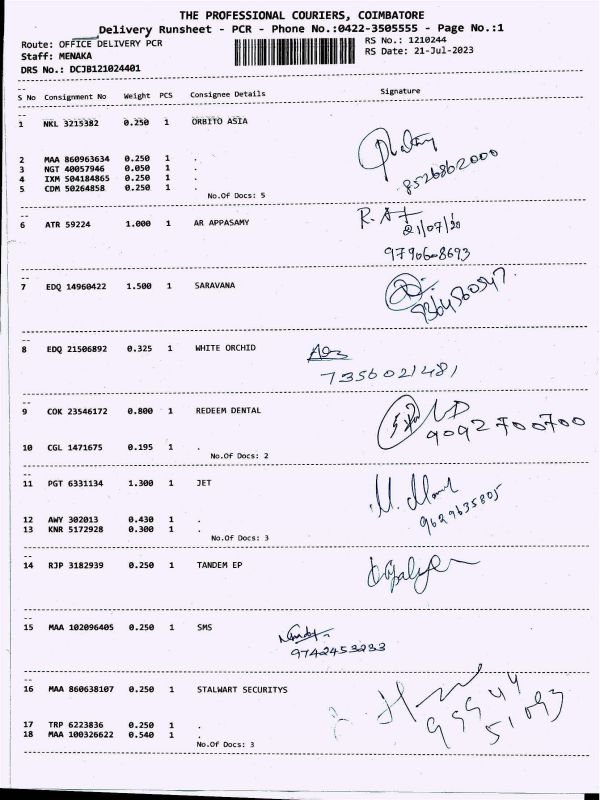 THE PROFESSIONAL COURIERS, COIMBATORE
Delivery Runsheet - PCR - Phone No.:0422-3505555 - Page No.:1
Route: OFFICE DELIVERY PCR
RS No.: 1210244
Staff: MENAKA
RS Date: 21-Jul-2023
DRS No.: DCJB121024401
S No Consignment No Weight PCS Consignee Details Signature
1 NKL 3215382 0.250 1 ORBITO ASIA
2 MAA 860963634 0.250 1 .
3 NGT 40057946 0.050 1 .
4 IXM 504184865 0.250 1 .
5 CDM 50264858 0.250 1 .
8526862000
No.Of Docs: 5
6 ATR 59224 1.000 1 AR APPASAMY
21/07/20
9790608693
7 EDQ 14960422 1.500 1 SARAVANA
9364560547
8 EDQ 21506892 0.325 1 WHITE ORCHID
7356021481
9 COK 23546172 0.800 1 REDEEM DENTAL
9092700700
10 CGL 1471675 0.195 1 .
No.Of Docs: 2
11 PGT 6331134 1.300 1 JET
9629635805
12 AWY 302013 0.430 1 .
13 KNR 5172928 0.300 1 .
No.Of Docs: 3
14 RJP 3182939 0.250 1 TANDEM EP
15 MAA 102096405 0.250 1 SMS
9742453233
16 MAA 860638107 0.250 1 STALWART SECURITYS
99944
51093
17 TRP 6223836 0.250 1 .
18 MAA 100326622 0.540 1 .
No.Of Docs: 3